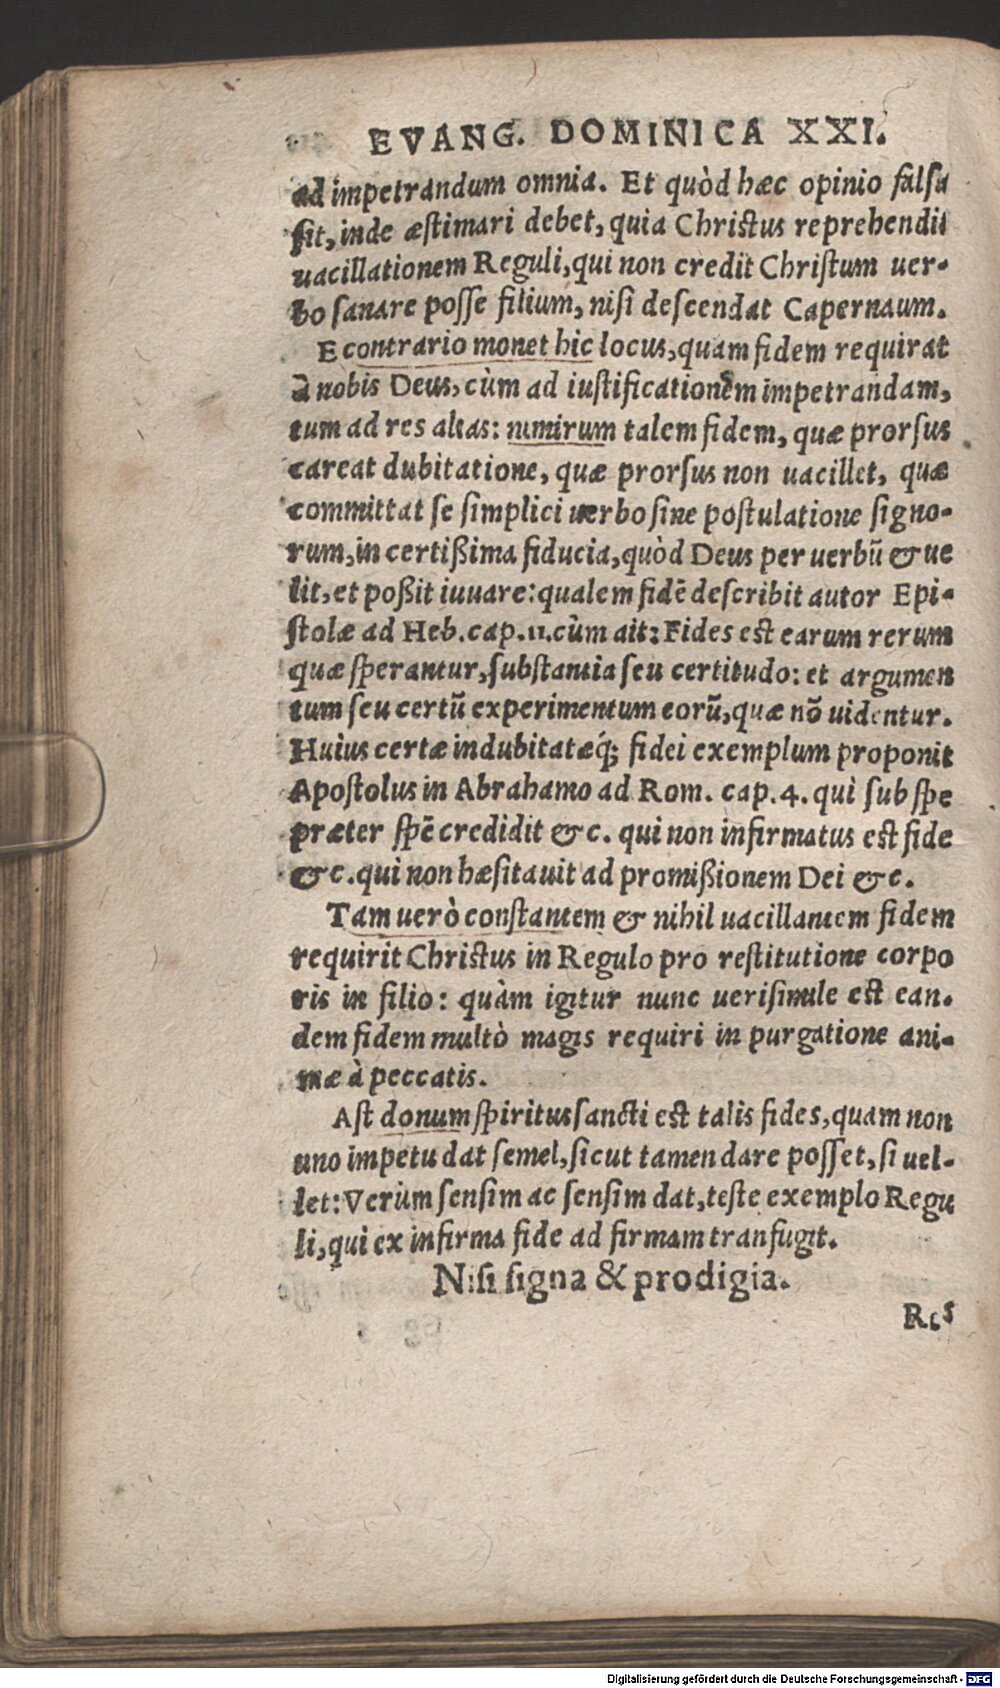 EVANG. DOMINICA XXI.
ad impetrandum omnia. Et quòd hæc opinio falsa
sit, inde æstimari debet, quia Christus reprehendit
uacillationem Reguli, qui non credit Christum uer-
bo sanare posse filium, nisi descendat Capernaum.
E contrario monet hic locus, quam fidem requirat
à nobis Deus, cùm ad iustificationem impetrandam,
tum ad res alias: nimirum talem fidem, quæ prorsus
careat dubitatione, quæ prorsus non uacillet, quæ
committat se simplici uerbo sine postulatione signo-
rum, in certißima fiducia, quòd Deus per uerbū & ue
lit, et poßit iuuare: qualem fidē describit autor Epi-
stolæ ad Heb. cap. 11. cùm ait: Fides est earum rerum
quæ sperantur, substantia seu certitudo: et argumen
tum seu certū experimentum eorū, quæ nō uidentur.
Huius certæ indubitatæq́; fidei exemplum proponit
Apostolus in Abrahamo ad Rom. cap. 4. qui sub spe
præter spē credidit &c. qui non infirmatus est fide
&c. qui non hæsitauit ad promißionem Dei &c.
Tam uerò constantem & nihil uacillantem fidem
requirit Christus in Regulo pro restitutione corpo
ris in filio: quàm igitur nunc uerisimile est ean-
dem fidem multò magis requiri in purgatione ani-
mæ à peccatis.
Ast donum spiritus sancti est talis fides, quam non
uno impetu dat semel, sicut tamen dare posset, si uel-
let: Verùm sensim ac sensim dat, teste exemplo Regu
li, qui ex infirma fide ad firmam transfugit.
Nisi signa & prodigia.
Res
Digitalisierung gefördert durch die Deutsche Forschungsgemeinschaft - DFG